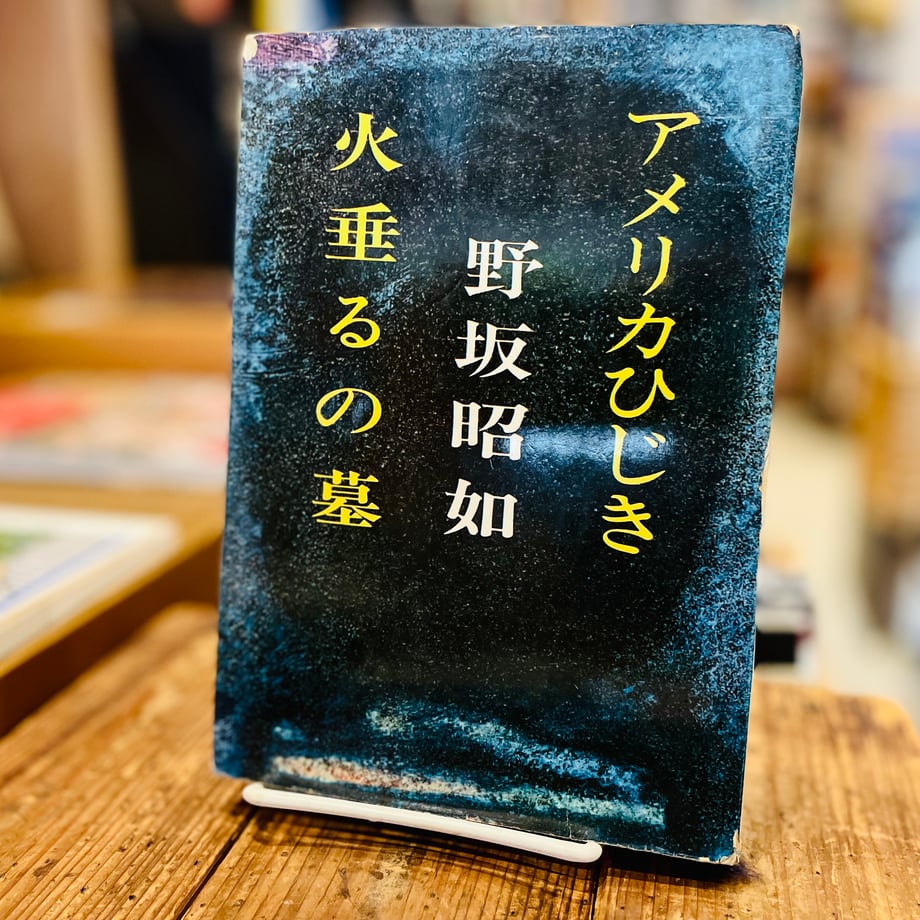 アメリカひじき
野坂昭如
火垂るの墓